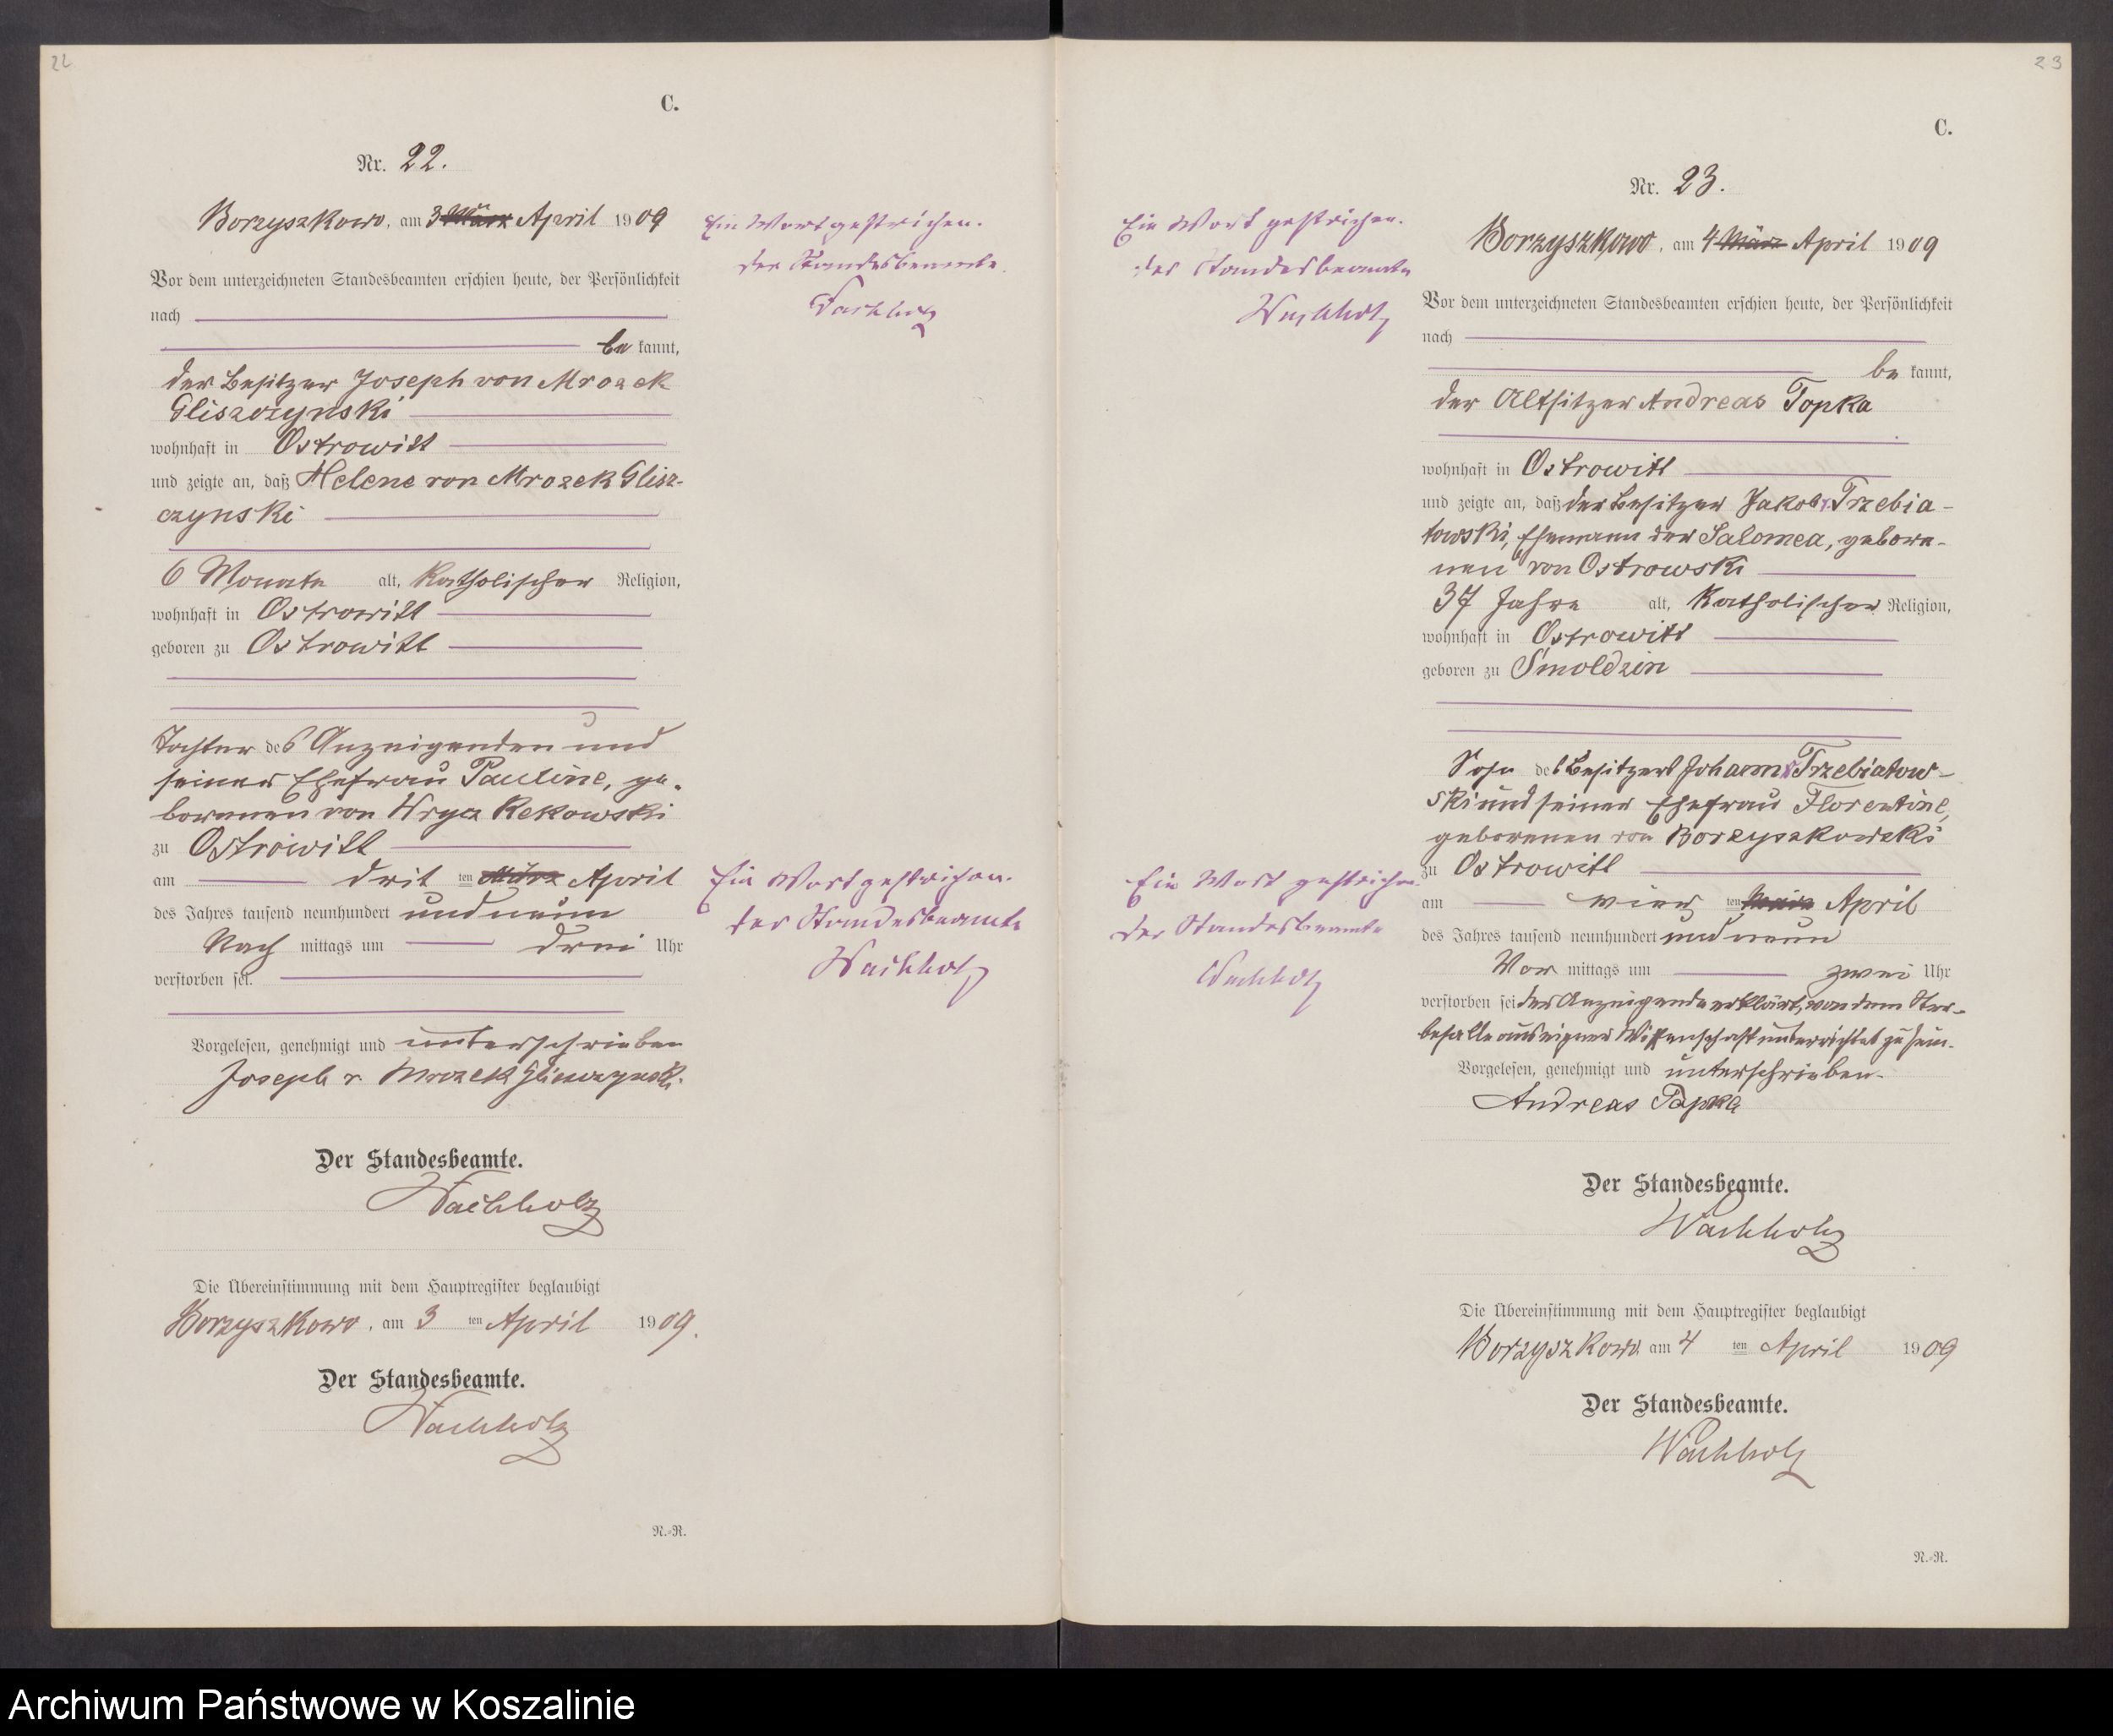 22
C.
Nr. 22.
Borzyszkowo, am 3 März April 1909
Vor dem unterzeichneten Standesbeamten erschien heute, der Persönlichkeit
nach
be kannt,
der Besitzer Joseph von Mrozek
Gliszczynski
wohnhaft in Ostrowitt
und zeigte an, daß Helene von Mrozek Glisz-
czynski
6 Monate alt, katholischer Religion,
wohnhaft in Ostrowitt
geboren zu Ostrowitt
Tochter des Anzeigenden und
seiner Ehefrau Pauline, ge-
borenen von Wrycz Rekowski
zu Ostrowitt
am drit ten März April
des Jahres tausend neunhundert und neun
Nach mittags um drei Uhr
verstorben sei.
Vorgelesen, genehmigt und unterschrieben
Joseph v Mrozek Gliszczynski.
Der Standesbeamte.
Wachholz
Die Übereinstimmung mit dem Hauptregister beglaubigt
Borzyszkowo, am 3 ten April 1909.
Der Standesbeamte.
Wachholz
N.-R.
Ein Wort gestrichen.
der Standesbeamte.
Wachholz
Ein Wort gestrichen.
der Standesbeamte
Wachholz
23
C.
Nr. 23.
Ein Wort gestrichen.
der Standesbeamte
Wachholz
Borzyszkowo, am 4 März April 1909
Vor dem unterzeichneten Standesbeamten erschien heute, der Persönlichkeit
nach
be kannt,
der Altsitzer Andreas Topka
wohnhaft in Ostrowitt
und zeigte an, daß der Besitzer Jakob v. Trzebia-
towski, Ehemann der Salomea, gebore-
nen von Ostrowski
37 Jahre alt, katholischer Religion,
wohnhaft in Ostrowitt
geboren zu Smoldzin
Sohn des Besitzers Johann v Trzebiatow-
ski und seiner Ehefrau Florentine,
geborenen von Borzyszkowski
zu Ostrowitt
am vier ten März April
des Jahres tausend neunhundert und neun
Vor mittags um zwei Uhr
verstorben sei der Anzeigende erklärt, von dem Ster-
befalle aus eigner Wissenschaft unterrichtet zu sein.
Vorgelesen, genehmigt und unterschrieben.
Andreas Topka
Ein Wort gestrichen.
der Standesbeamte
Wachholz
Der Standesbeamte.
Wachholz
Die Übereinstimmung mit dem Hauptregister beglaubigt
Borzyszkowo, am 4 ten April 1909
Der Standesbeamte.
Wachholz
N.-R.
Archiwum Państwowe w Koszalinie